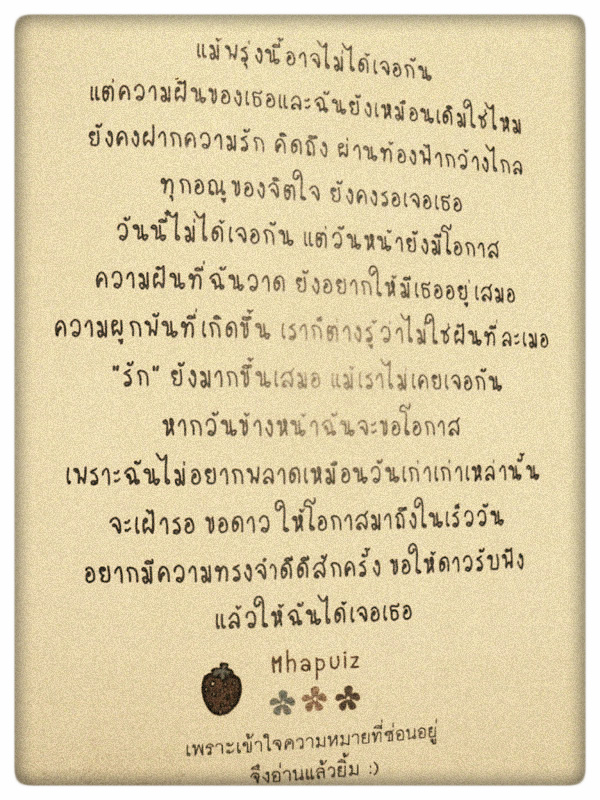 แม้พรุ่งนี้อาจไม่ได้เจอกัน
แต่ความฝันของเธอและฉันยังเหมือนเดิมใช่ไหม
ยังคงฝากความรัก คิดถึง ผ่านท้องฟ้ากว้างไกล
ทุกอณูของจิตใจ ยังคงรอเจอเธอ
วันนี้ไม่ได้เจอกัน แต่วันหน้ายังมีโอกาส
ความฝันที่ฉันวาด ยังอยากให้มีเธออยู่เสมอ
ความผูกพันที่เกิดขึ้น เราก็ต่างรู้ว่าไม่ใช่ฝันที่ละเมอ
"รัก" ยังมากขึ้นเสมอ แม้เราไม่เคยเจอกัน
หากวันข้างหน้าฉันจะขอโอกาส
เพราะฉันไม่อยากพลาดเหมือนวันเก่าเก่าเหล่านั้น
จะเฝ้ารอ ขอดาว ให้โอกาสมาถึงในเร็ววัน
อยากมีความทรงจำดีดีสักครั้ง ขอให้ดาวรับฟัง
แล้วให้ฉันได้เจอเธอ
Mhapuiz
เพราะเข้าใจความหมายที่ซ่อนอยู่
จึงอ่านแล้วยิ้ม :)